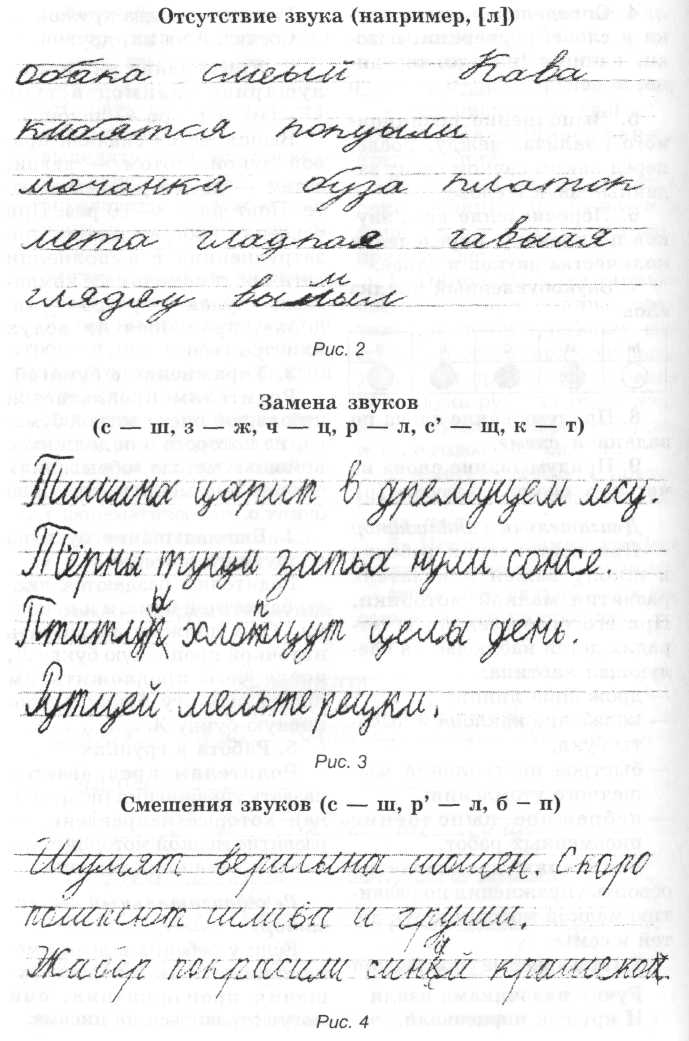 Отсутствие звука (например, [л])
обака смеый Кава
кшоятся попуыли
мочанка буза платок
мета гладкая гавыая
глядяу вымыл
Рис. 2
Замена звуков
(с — ш, з — ж, ч — ц, р — л, с’ — щ, к — т)
Тишина царит в дремуцем лесу.
Тёрны туци затыа нули сонсе.
хлотцут целы день.
Руцей мельте рецки.
Рис. 3
Смешения звуков (с — ш, р’ — л, б – п)
Шумят вершына шошен. Скоро
пошпеют шлива и груши.
Жабор покрасили синей крашекой.
Рис. 4